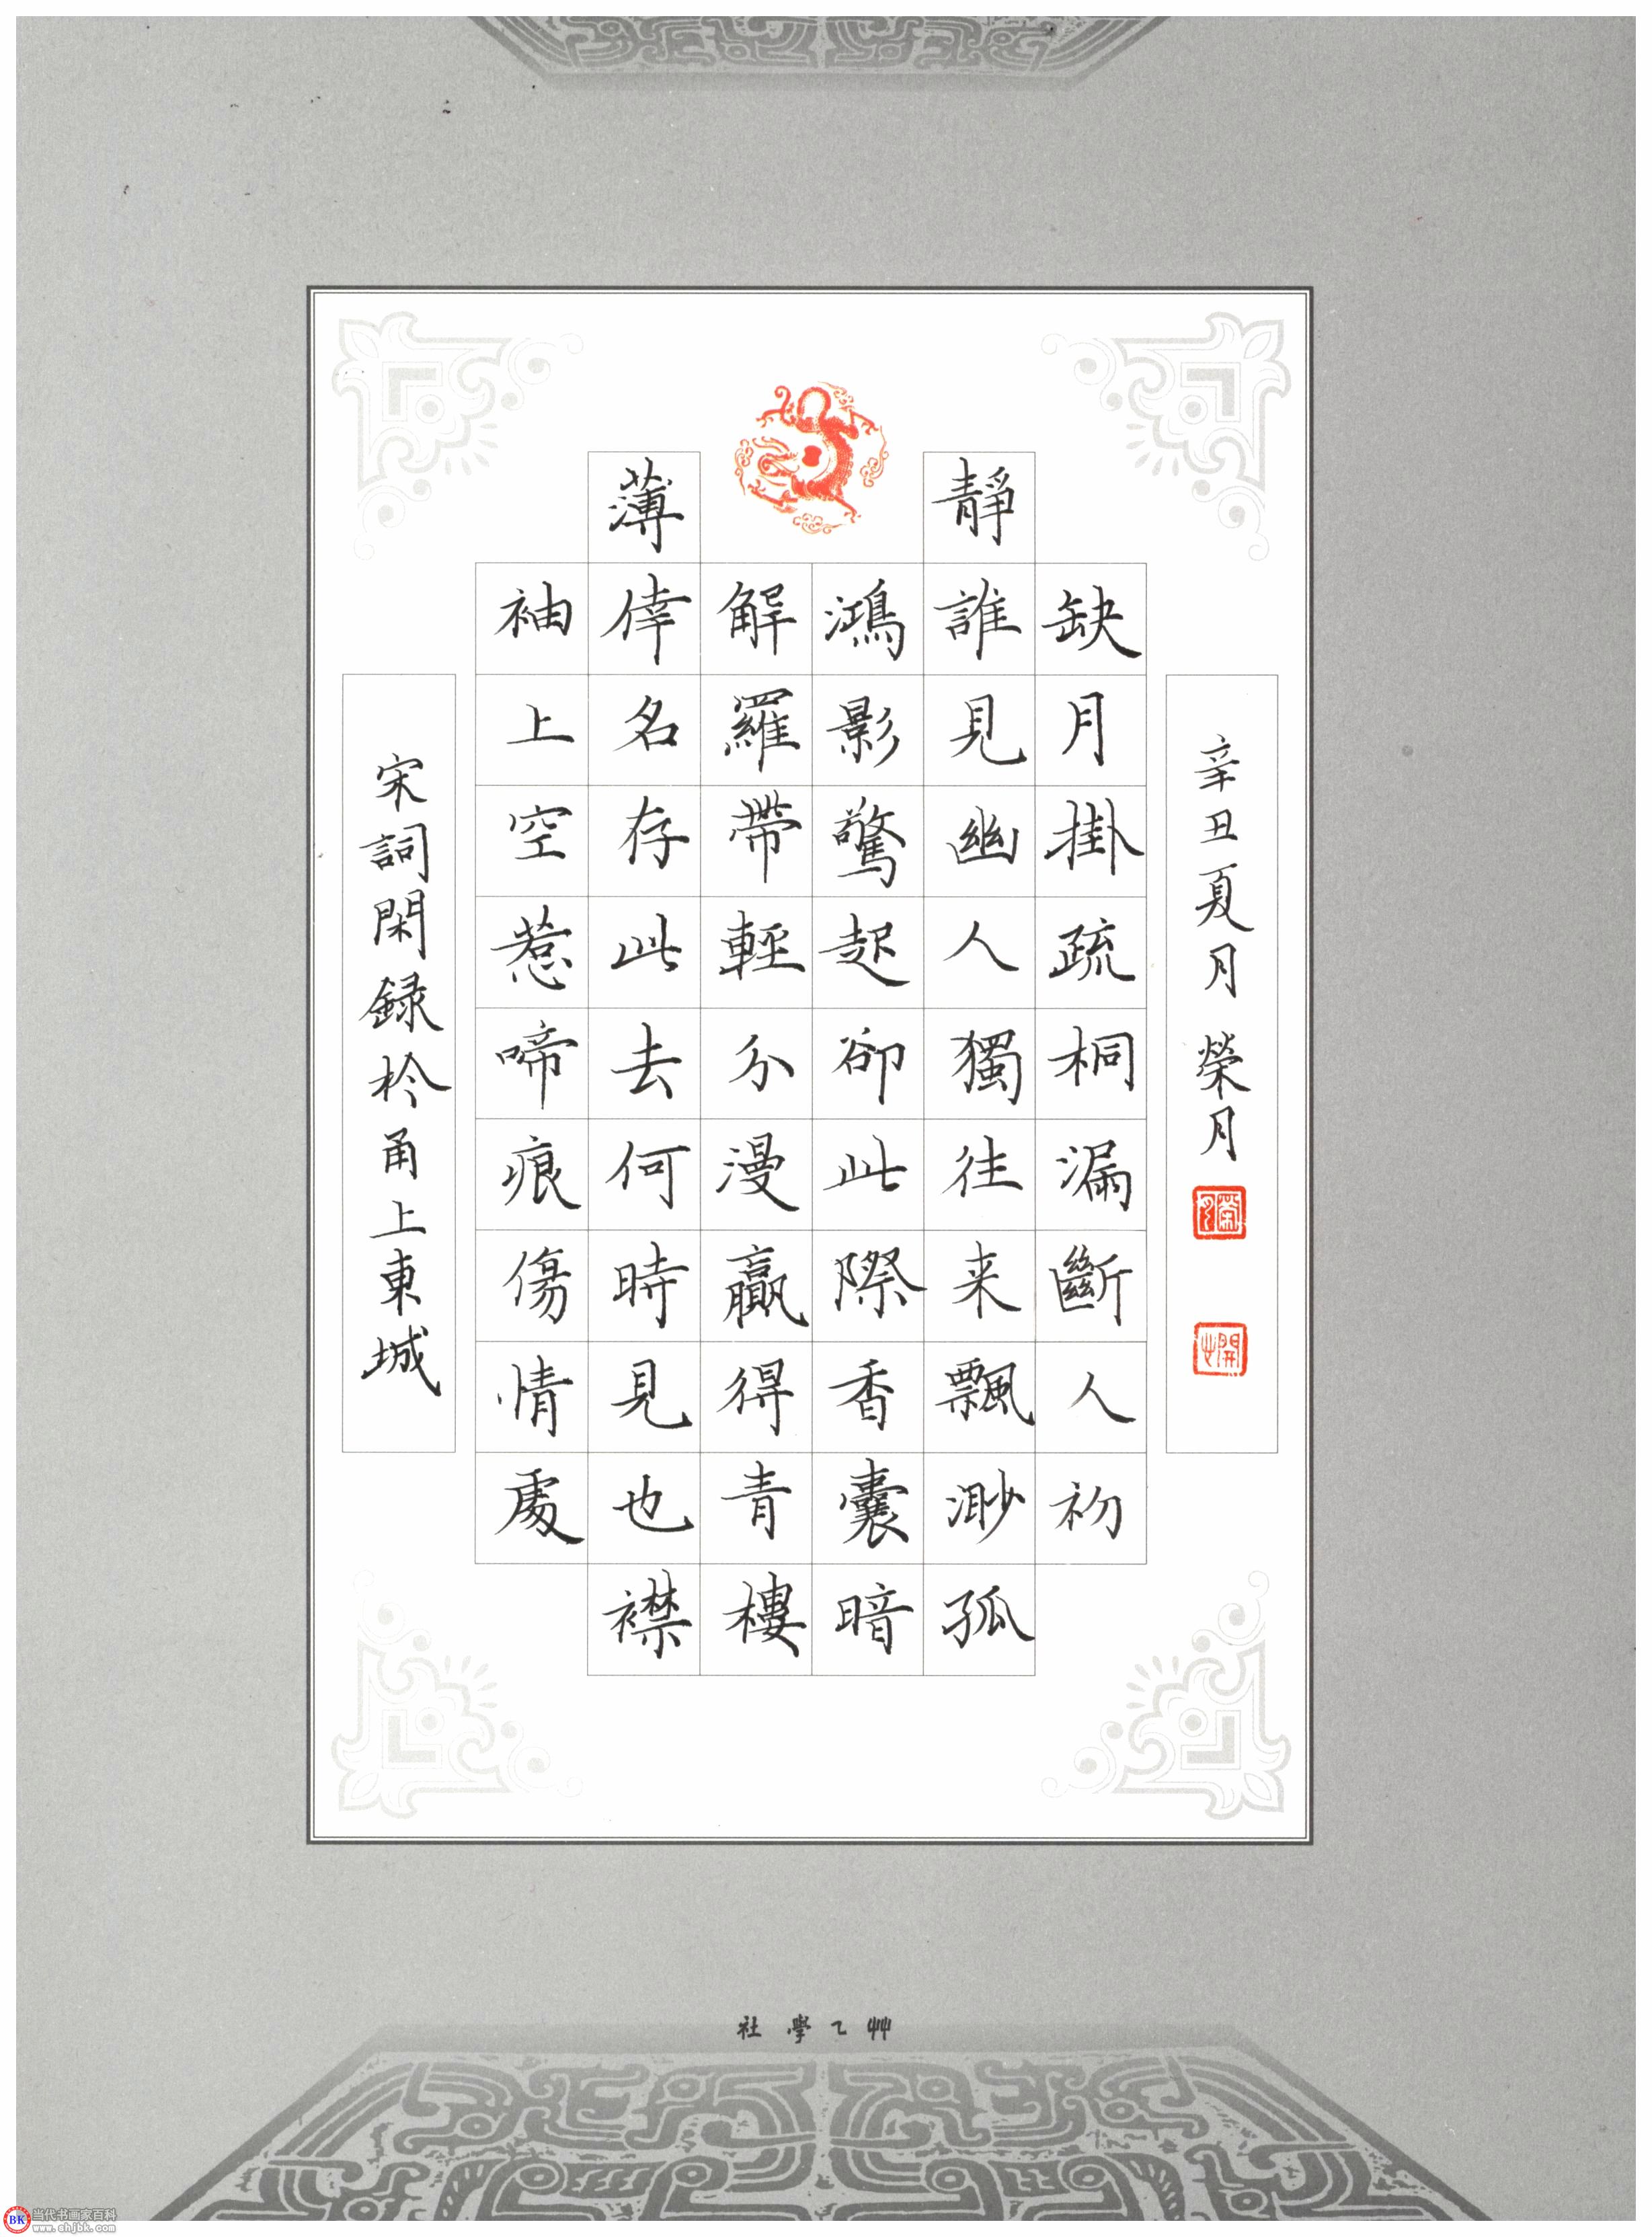 辛丑夏月 榮月
榮月
缺月掛疏桐漏斷人初
靜誰見幽人獨往来飄渺孤
鴻影驚起卻此際香囊暗
解羅帶輕分漫贏得青樓
薄倖名存此去何時見也襟
袖上空惹啼痕傷情處
宋詞閑録於甬上東城
艸乙學社
BK 当代书画家百科
www.shjbk.com